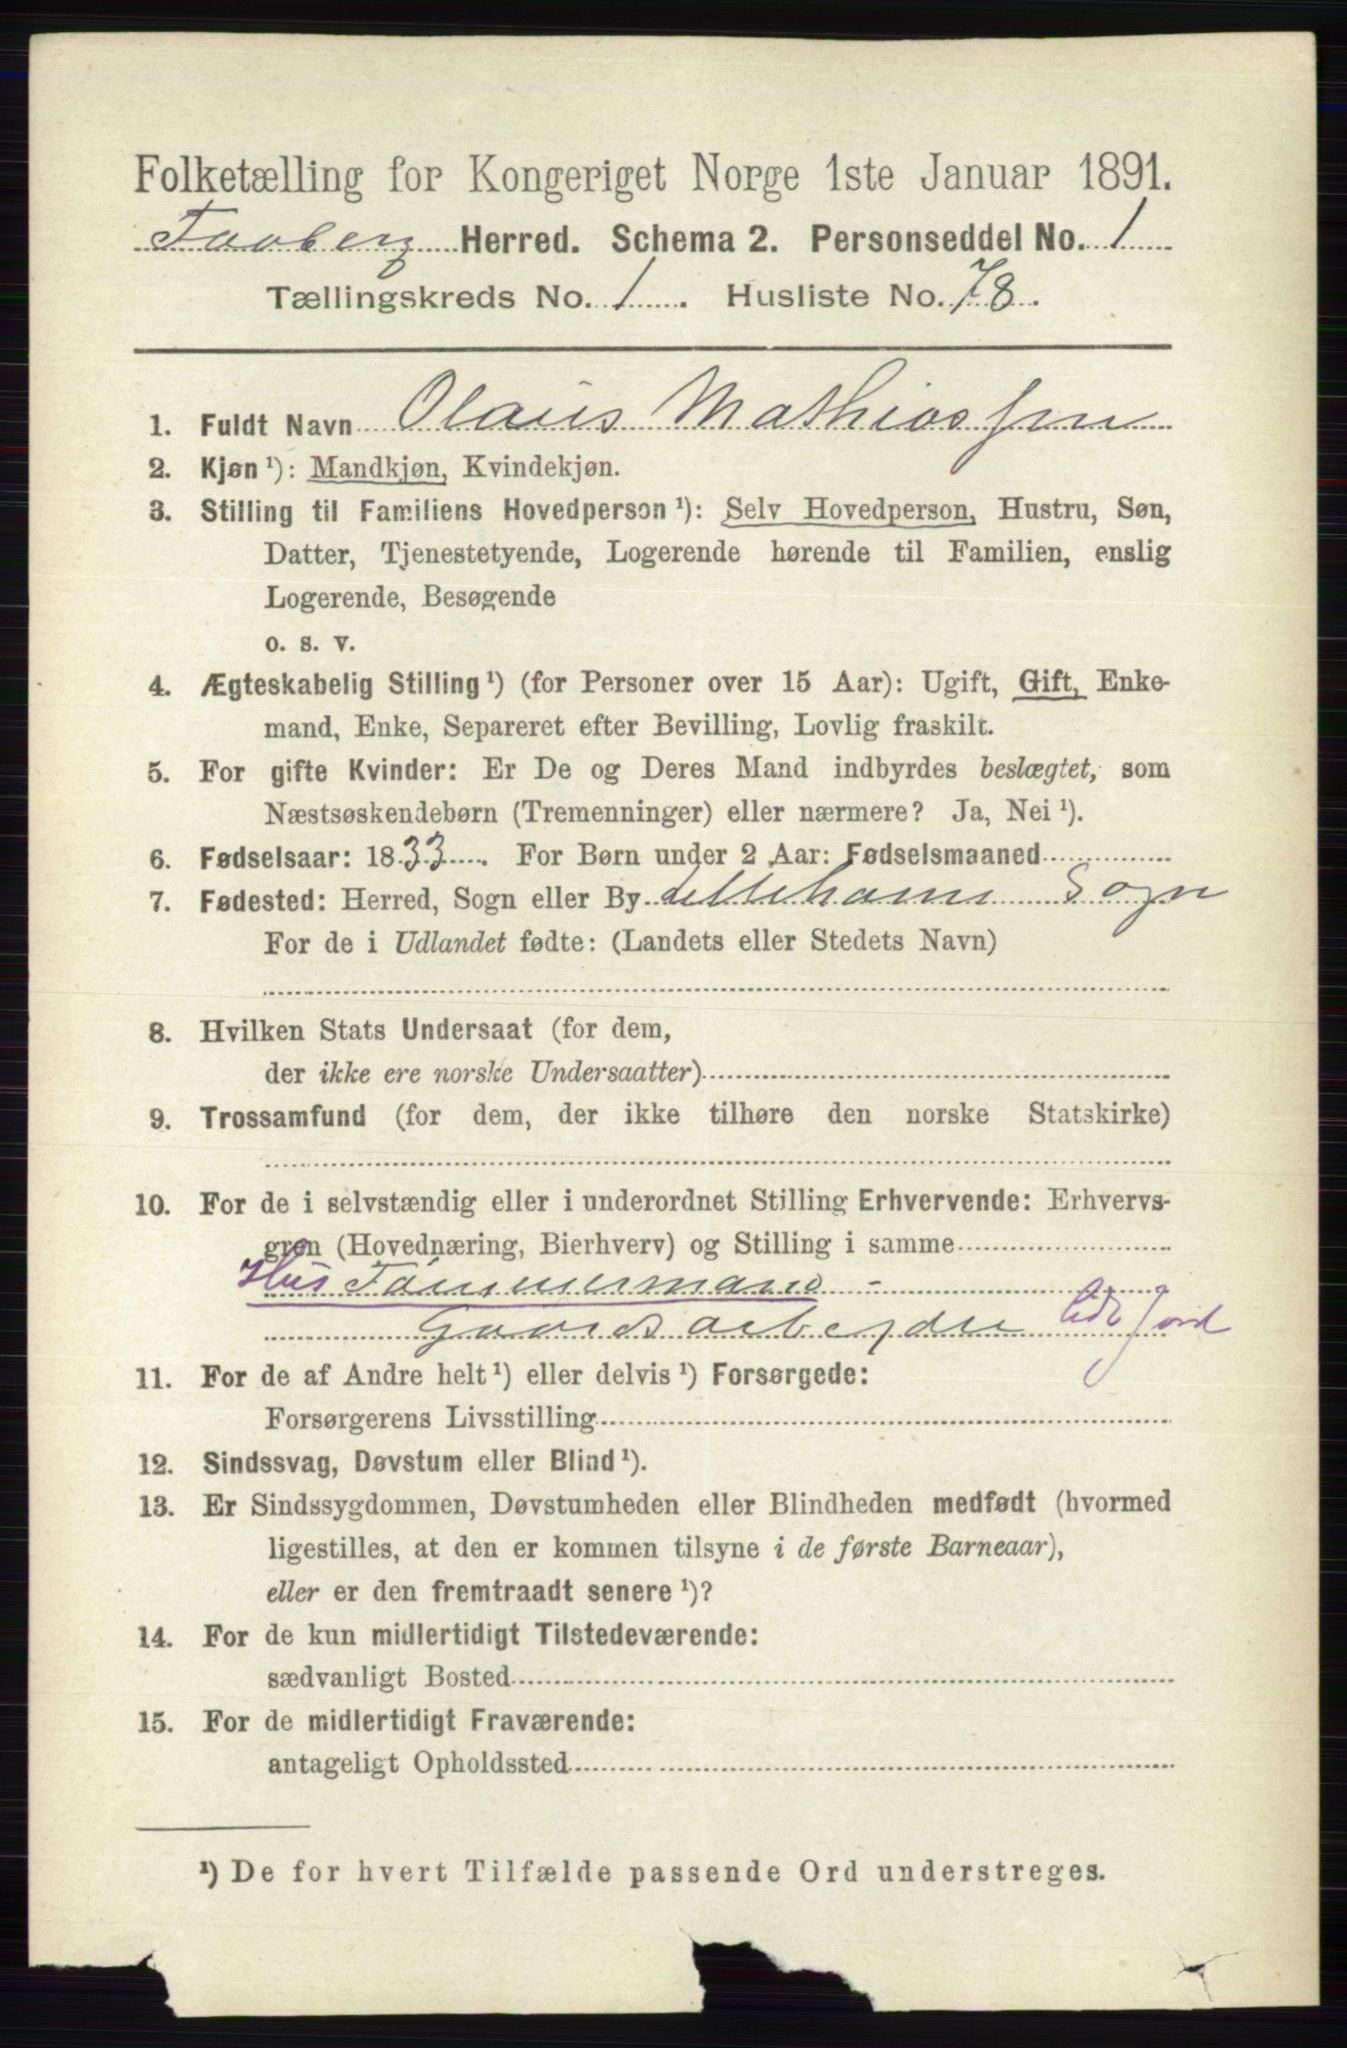 Folketælling for Kongeriget Norge 1ste Januar 1891.
Faaberg Herred. Schema 2. Personseddel No. 1
Tællingskreds No. 1. Husliste No. 78.
1. Fuldt Navn Olaus Mathiassen
2. Kjøn ¹): Mandkjøn, Kvindekjøn.
3. Stilling til Familiens Hovedperson ¹): Selv Hovedperson, Hustru, Søn,
Datter, Tjenestetyende, Logerende hørende til Familien, enslig
Logerende, Besøgende
o. s. v.
4. Ægteskabelig Stilling ¹) (for Personer over 15 Aar): Ugift, Gift, Enke-
mand, Enke, Separeret efter Bevilling, Lovlig fraskilt.
5. For gifte Kvinder: Er De og Deres Mand indbyrdes beslægtet, som
Næstsøskendebørn (Tremenninger) eller nærmere? Ja, Nei ¹).
6. Fødselsaar: 1833. For Børn under 2 Aar: Fødselsmaaned
7. Fødested: Herred, Sogn eller By Lillehamr Sogn
For de i Udlandet fødte: (Landets eller Stedets Navn)
8. Hvilken Stats Undersaat (for dem,
der ikke ere norske Undersaatter)
9. Trossamfund (for dem, der ikke tilhøre den norske Statskirke)
10. For de i selvstændig eller i underordnet Stilling Erhvervende: Erhvervs-
gren (Hovednæring, Bierhverv) og Stilling i samme
Hus Tømmermand -
Gaardsarbejder Jord
11. For de af Andre helt ¹) eller delvis ¹) Forsørgede:
Forsørgerens Livsstilling
12. Sindssvag, Døvstum eller Blind ¹).
13. Er Sindssygdommen, Døvstumheden eller Blindheden medfødt (hvormed
ligestilles, at den er kommen tilsyne i de første Barneaar),
eller er den fremtraadt senere ¹)?
14. For de kun midlertidigt Tilstedeværende:
sædvanligt Bosted
15. For de midlertidigt Fraværende:
antageligt Opholdssted
¹) De for hvert Tilfælde passende Ord understreges.